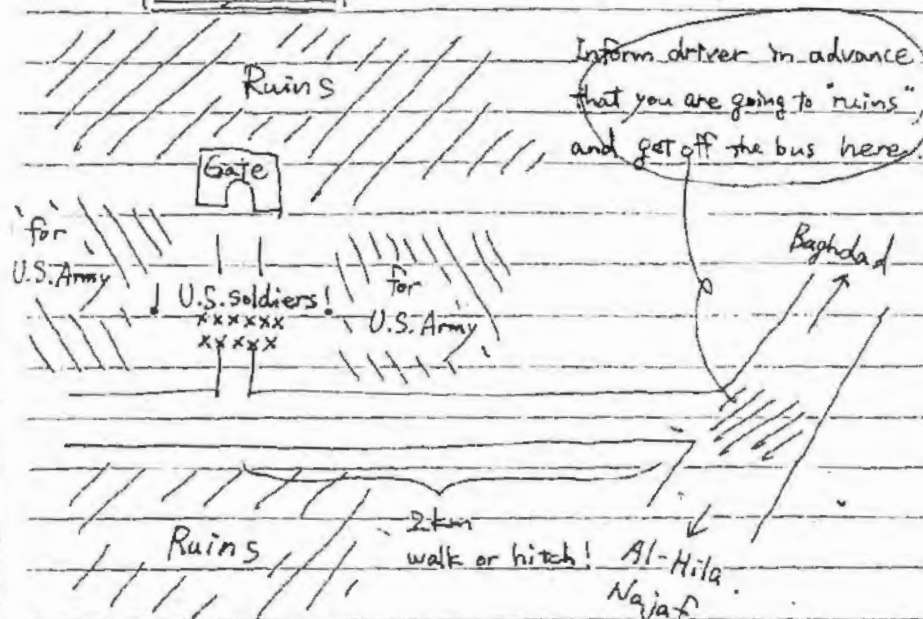 Ruins
Inform driver in advance
that you are going to "ruins"
and get off the bus here.
Gate
for
U.S. Army
! U.S. soldiers!
xxxxxx
xxxxx
for
U.S. Army
Baghdad
2km
walk or hitch!
Ruins
Al-Hila
Najaf